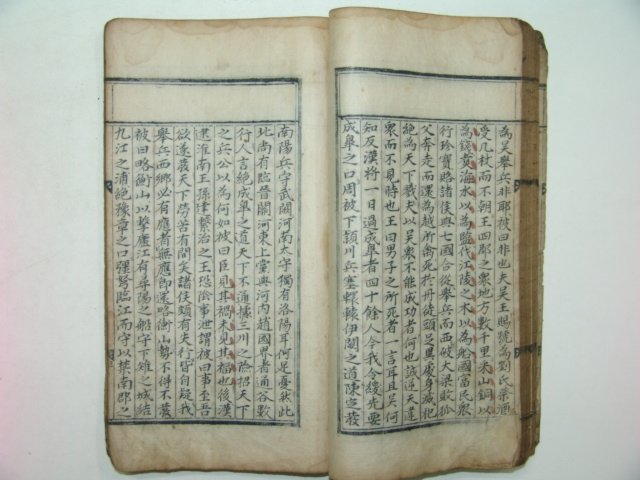 爲吳舉兵非耶被曰非也夫吳王賜號爲劉氏祭酒
受几杖而不朝王四郡之衆地方數千里采山銅以
爲錢煮海水以爲鹽伐江陵之木以爲船國富民衆
行珍寶賂諸侯與七國合從舉兵而西破大梁敗狐
父奔走而還爲越所禽死於丹徒頭足異處身滅祀
絶爲天下戮夫以吳衆不能成功者何也誠逆天違
衆而不見時也王曰男子之所死者一言耳且吳何
知反漢將一日過成皐者四十餘人今我令緩先要
成皐之口周被下潁川兵塞轘轅伊闕之道陳定發
南陽兵守武關河南太守獨有洛陽耳何足憂然此
北尚有臨晉關河東上黨與河內趙國界者通谷數
行人言絶成皐之道天下不通據三川之險招天下
之兵公以爲何如被曰臣見其禍未見其福也後漢
逮淮南王孫建繫治之王恐陰事泄謂被曰事至吾
欲遂發天下勞苦有間矣諸侯頗有失行皆自疑我
舉兵西鄉必有應者無應即還略衡山勢不得不發
被曰略衡山以擊廬江有尋陽之船守下雉之城結
九江之浦絶豫章之口彊弩臨江而守以禁南郡之